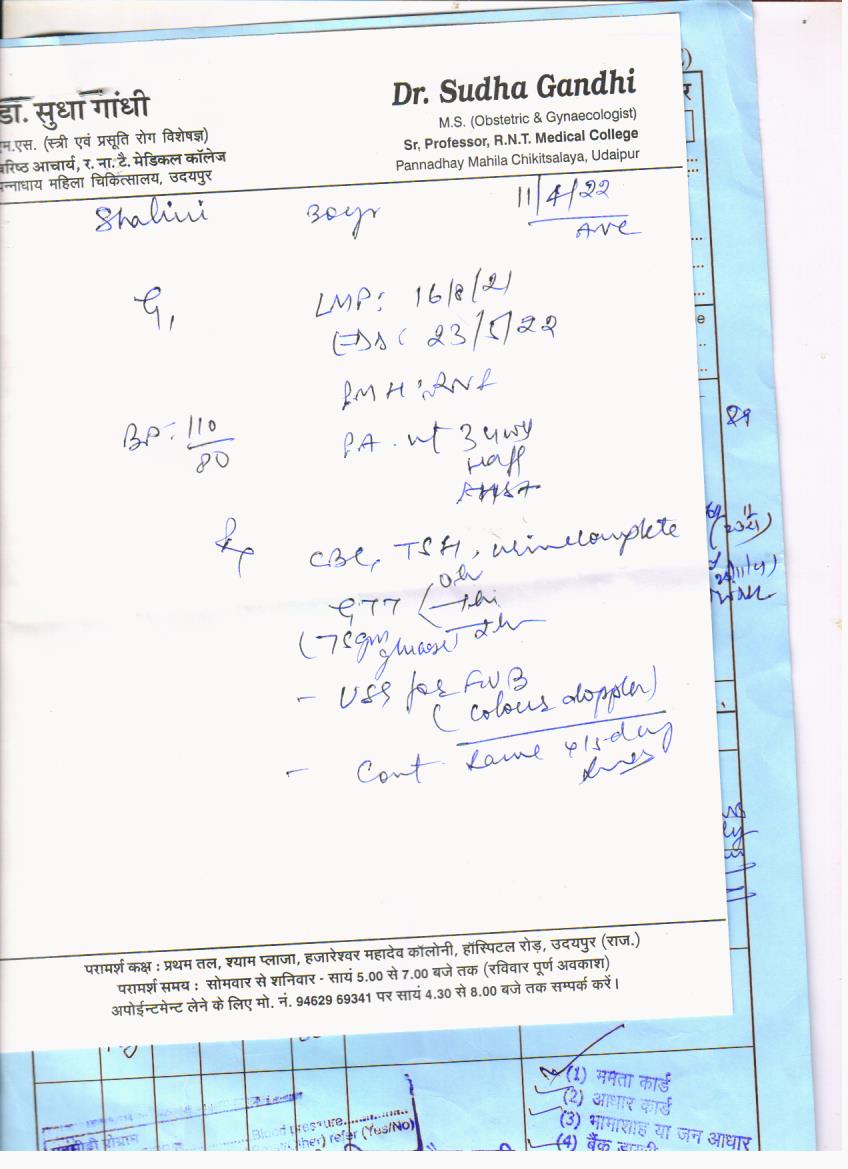 डा. सुधा गांधी
एम.एस. (स्त्री एवं प्रसूति रोग विशेषज्ञ)
वरिष्ठ आचार्य, र. ना. टै. मेडिकल कॉलेज
पन्नाधाय महिला चिकित्सालय, उदयपुर
Dr. Sudha Gandhi
M.S. (Obstetric & Gynaecologist)
Sr, Professor, R.N.T. Medical College
Pannadhay Mahila Chikitsalaya, Udaipur
Shalini 30yr 11/4/22
ANC
G1 LMP: 16/8/21
EDD: 23/5/22
PMH:
BP: 110/80 PA. ut 34wk
CBC, TSH, urine complete
GTT 0h
1h
(75gm glucose) 2h
- USG for FWB
(colour doppler)
- Cont. same
परामर्श कक्ष : प्रथम तल, श्याम प्लाजा, हजारेश्वर महादेव कॉलोनी, हॉस्पिटल रोड़, उदयपुर (राज.)
परामर्श समय : सोमवार से शनिवार - सायं 5.00 से 7.00 बजे तक (रविवार पूर्ण अवकाश)
अपोईन्टमेन्ट लेने के लिए मो. नं. 94629 69341 पर सायं 4.30 से 8.00 बजे तक सम्पर्क करें।
(1) ममता कार्ड
(2) आधार कार्ड
(3) भामाशाह या जन आधार
(4) बैंक
Blood pressure
refer (Yes/No)